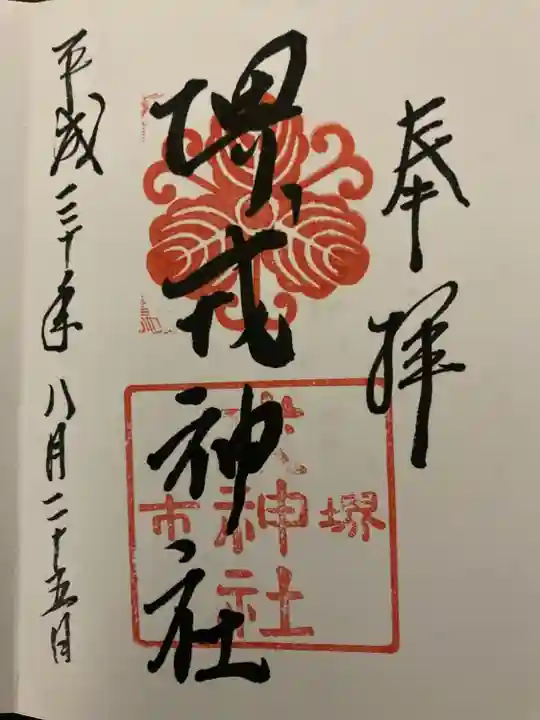 奉拝
堺戎神社
堺市
戎神社
平成三十年八月二十五日